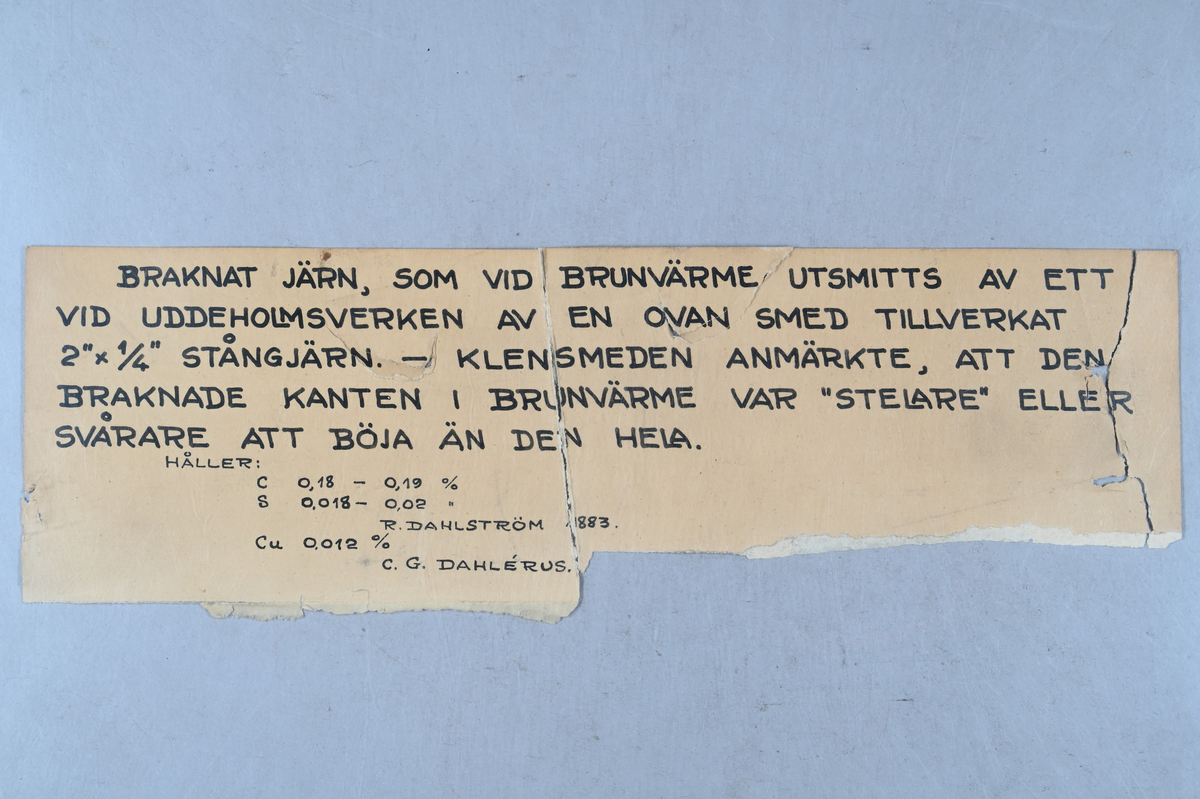 BRAKNAT JÄRN, SOM VID BRUNVÄRME UTSMITTS AV ETT
VID UDDEHOLMSVERKEN AV EN OVAN SMED TILLVERKAT
2"x 1/4" STÅNGJÄRN. — KLENSMEDEN ANMÄRKTE, ATT DEN
BRAKNADE KANTEN I BRUNVÄRME VAR "STELARE" ELLER
SVÅRARE ATT BÖJA ÄN DEN HELA.
HÅLLER:
C 0,18 – 0,19 %
S 0,018 – 0,02 "
R. DAHLSTRÖM 1883.
Cu 0,012 %
C. G. DAHLÉRUS.